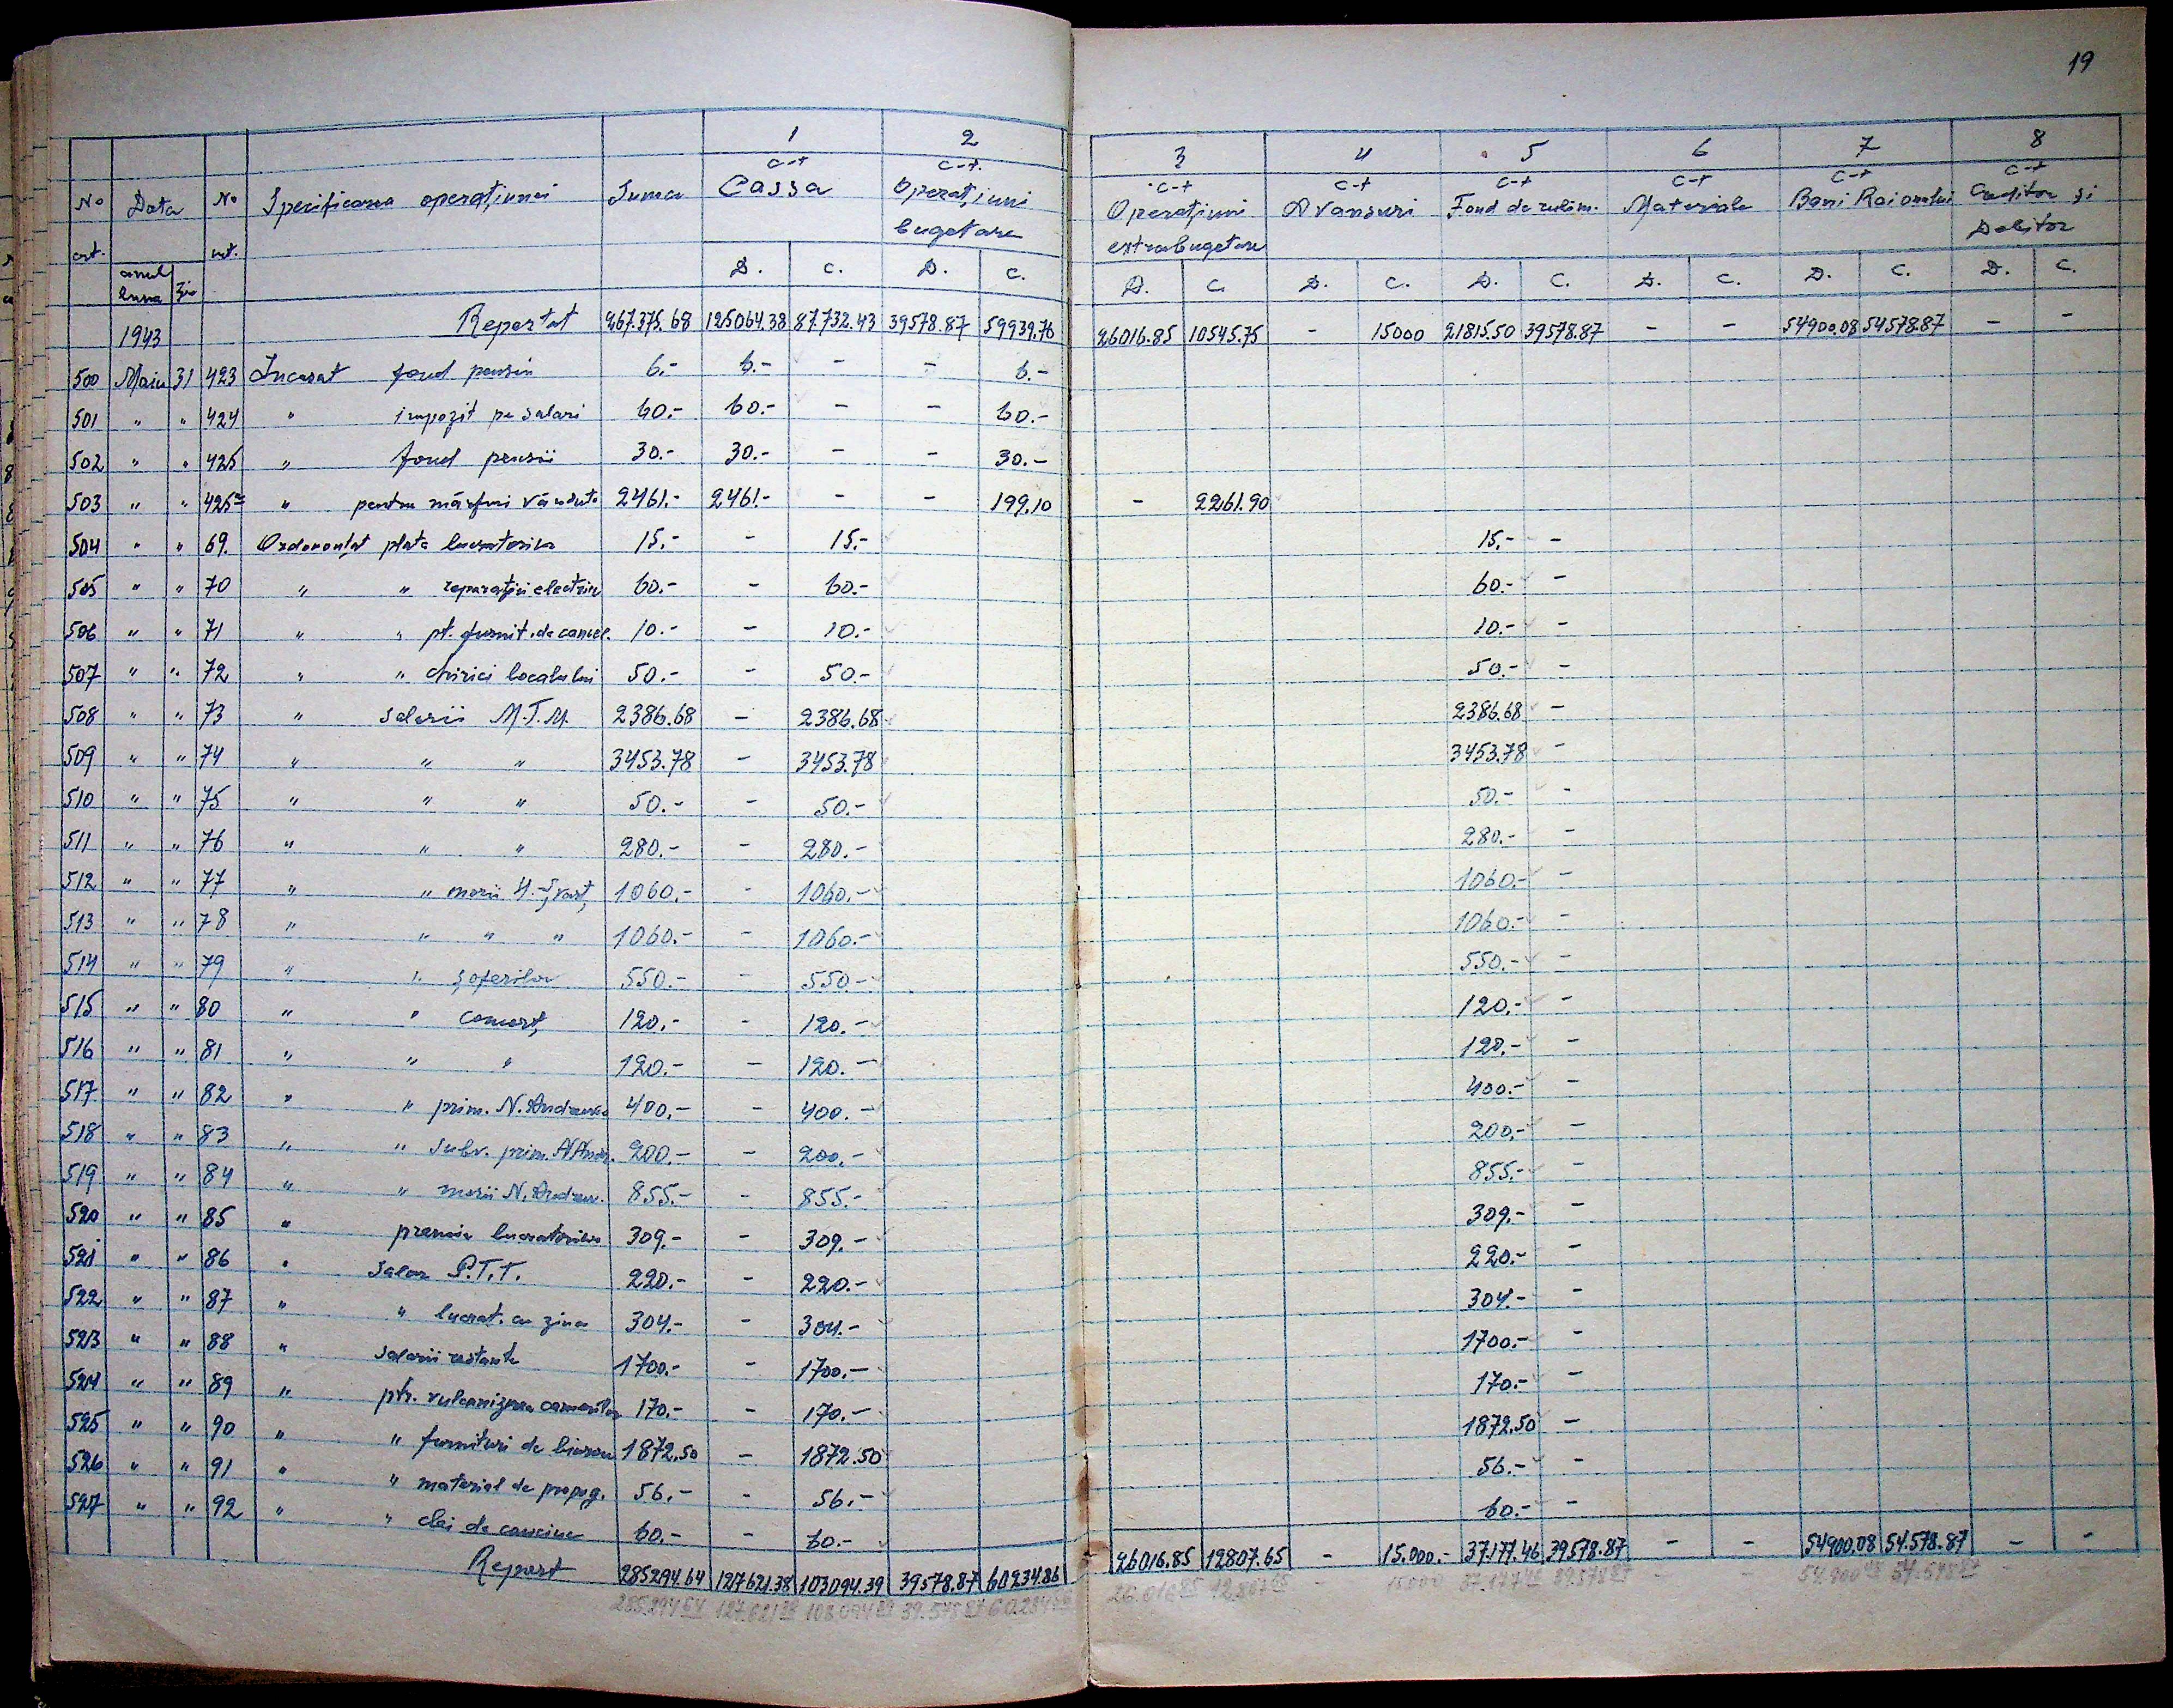 19
1 2 3 4 5 6 7 8
c-t c-t. c-t c-t c-t c-t c-t c-t
No Data No Specificarea operațiunei Suma Cassa Operațiuni Operațiuni Avansuri Fond de rulm. Materiale Bani Raionului Creditor și
crt. act. bugetare extrabugetare Debitor
anul luna Zi D. C. D. C. D. C. D. C. D. C. D. C. D. C. D. C.
1943 Reportat 267.375.68 125064.38 87.732.43 39578.87 59939.76 26016.85 10545.75 - 15000 21815.50 39578.87 - - 54900.08 54578.87 - -
500 Maiu 31 423 Incasat fond pensii 6.- 6.- - - 6.-
501 " " 424 " impozit pe salarii 60.- 60.- - - 60.-
502 " " 425 " fond pensii 30.- 30.- - - 30.-
503 " " 425a " pentru mărfuri vândute 2461.- 2461.- - - 199.10 - 2261.90
504 " " 69. Ordonanțat plata lucratorilor 15.- - 15.- 15.- -
505 " " 70 " " reparații electrice 60.- - 60.- 60.- -
506 " " 71 " " pt. furnit. de cancel. 10.- - 10.- 10.- -
507 " " 72 " " chirici localului 50.- - 50.- 50.- -
508 " " 73 " Salarii M.T.M. 2386.68 - 2386.68 2386.68 -
509 " " 74 " " " 3453.78 - 3453.78 3453.78 -
510 " " 75 " " " 50.- - 50.- 50.- -
511 " " 76 " " " 280.- - 280.- 280.- -
512 " " 77 " " morii 1060.- - 1060.- 1060.- -
513 " " 78 " " " " 1060.- - 1060.- 1060.- -
514 " " 79 " " șoferilor 550.- - 550.- 550.- -
515 " " 80 " " comerț 120.- - 120.- 120.- -
516 " " 81 " " " 120.- - 120.- 120.- -
517 " " 82 " " prim. N. Andreevca 400.- - 400.- 400.- -
518 " " 83 " " Subv. prim. N. Andr. 200.- - 200.- 200.- -
519 " " 84 " " morii N. Andreev. 855.- - 855.- 855.- -
520 " " 85 " premiu lucratorilor 309.- - 309.- 309.- -
521 " " 86 " Salar P.T.T. 220.- - 220.- 220.- -
522 " " 87 " " lucrat. cu ziua 304.- - 304.- 304.- -
523 " " 88 " Salarii restante 1700.- - 1700.- 1700.- -
524 " " 89 " ptr. vulcanizarea camerilor 170.- - 170.- 170.- -
525 " " 90 " " furnituri de birou 1872.50 - 1872.50 1872.50 -
526 " " 91 " " material de propag. 56.- - 56.- 56.- -
527 " " 92 " " clei de cauciuc 60.- - 60.- 60.- -
Report 285294.64 127621.38 103094.39 39578.87 60234.86 26016.85 12807.65 - 15.000.- 37.177.46 39578.87 - - 54900.08 54.578.87 - -
285.294 64 127.621 38 103.094 39 39.578 87 60.234 86 26.016 85 12.807 65 - 15.000 37.177 46 39.578 87 - - 54.900 08 54.578 87